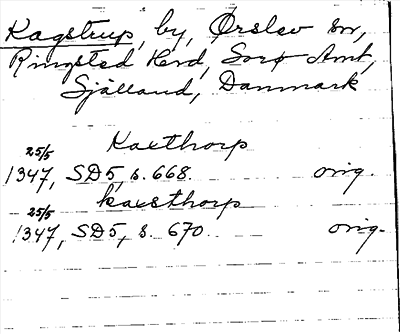 Kagstrup, by, Ørslev sn,
Ringsted Hrd, Sorø Amt,
Själland, Danmark
Kaxthorp
25/5
1347, SD5, s. 668. orig.
kaxsthorp
25/5
1347, SD5, s. 670. orig.